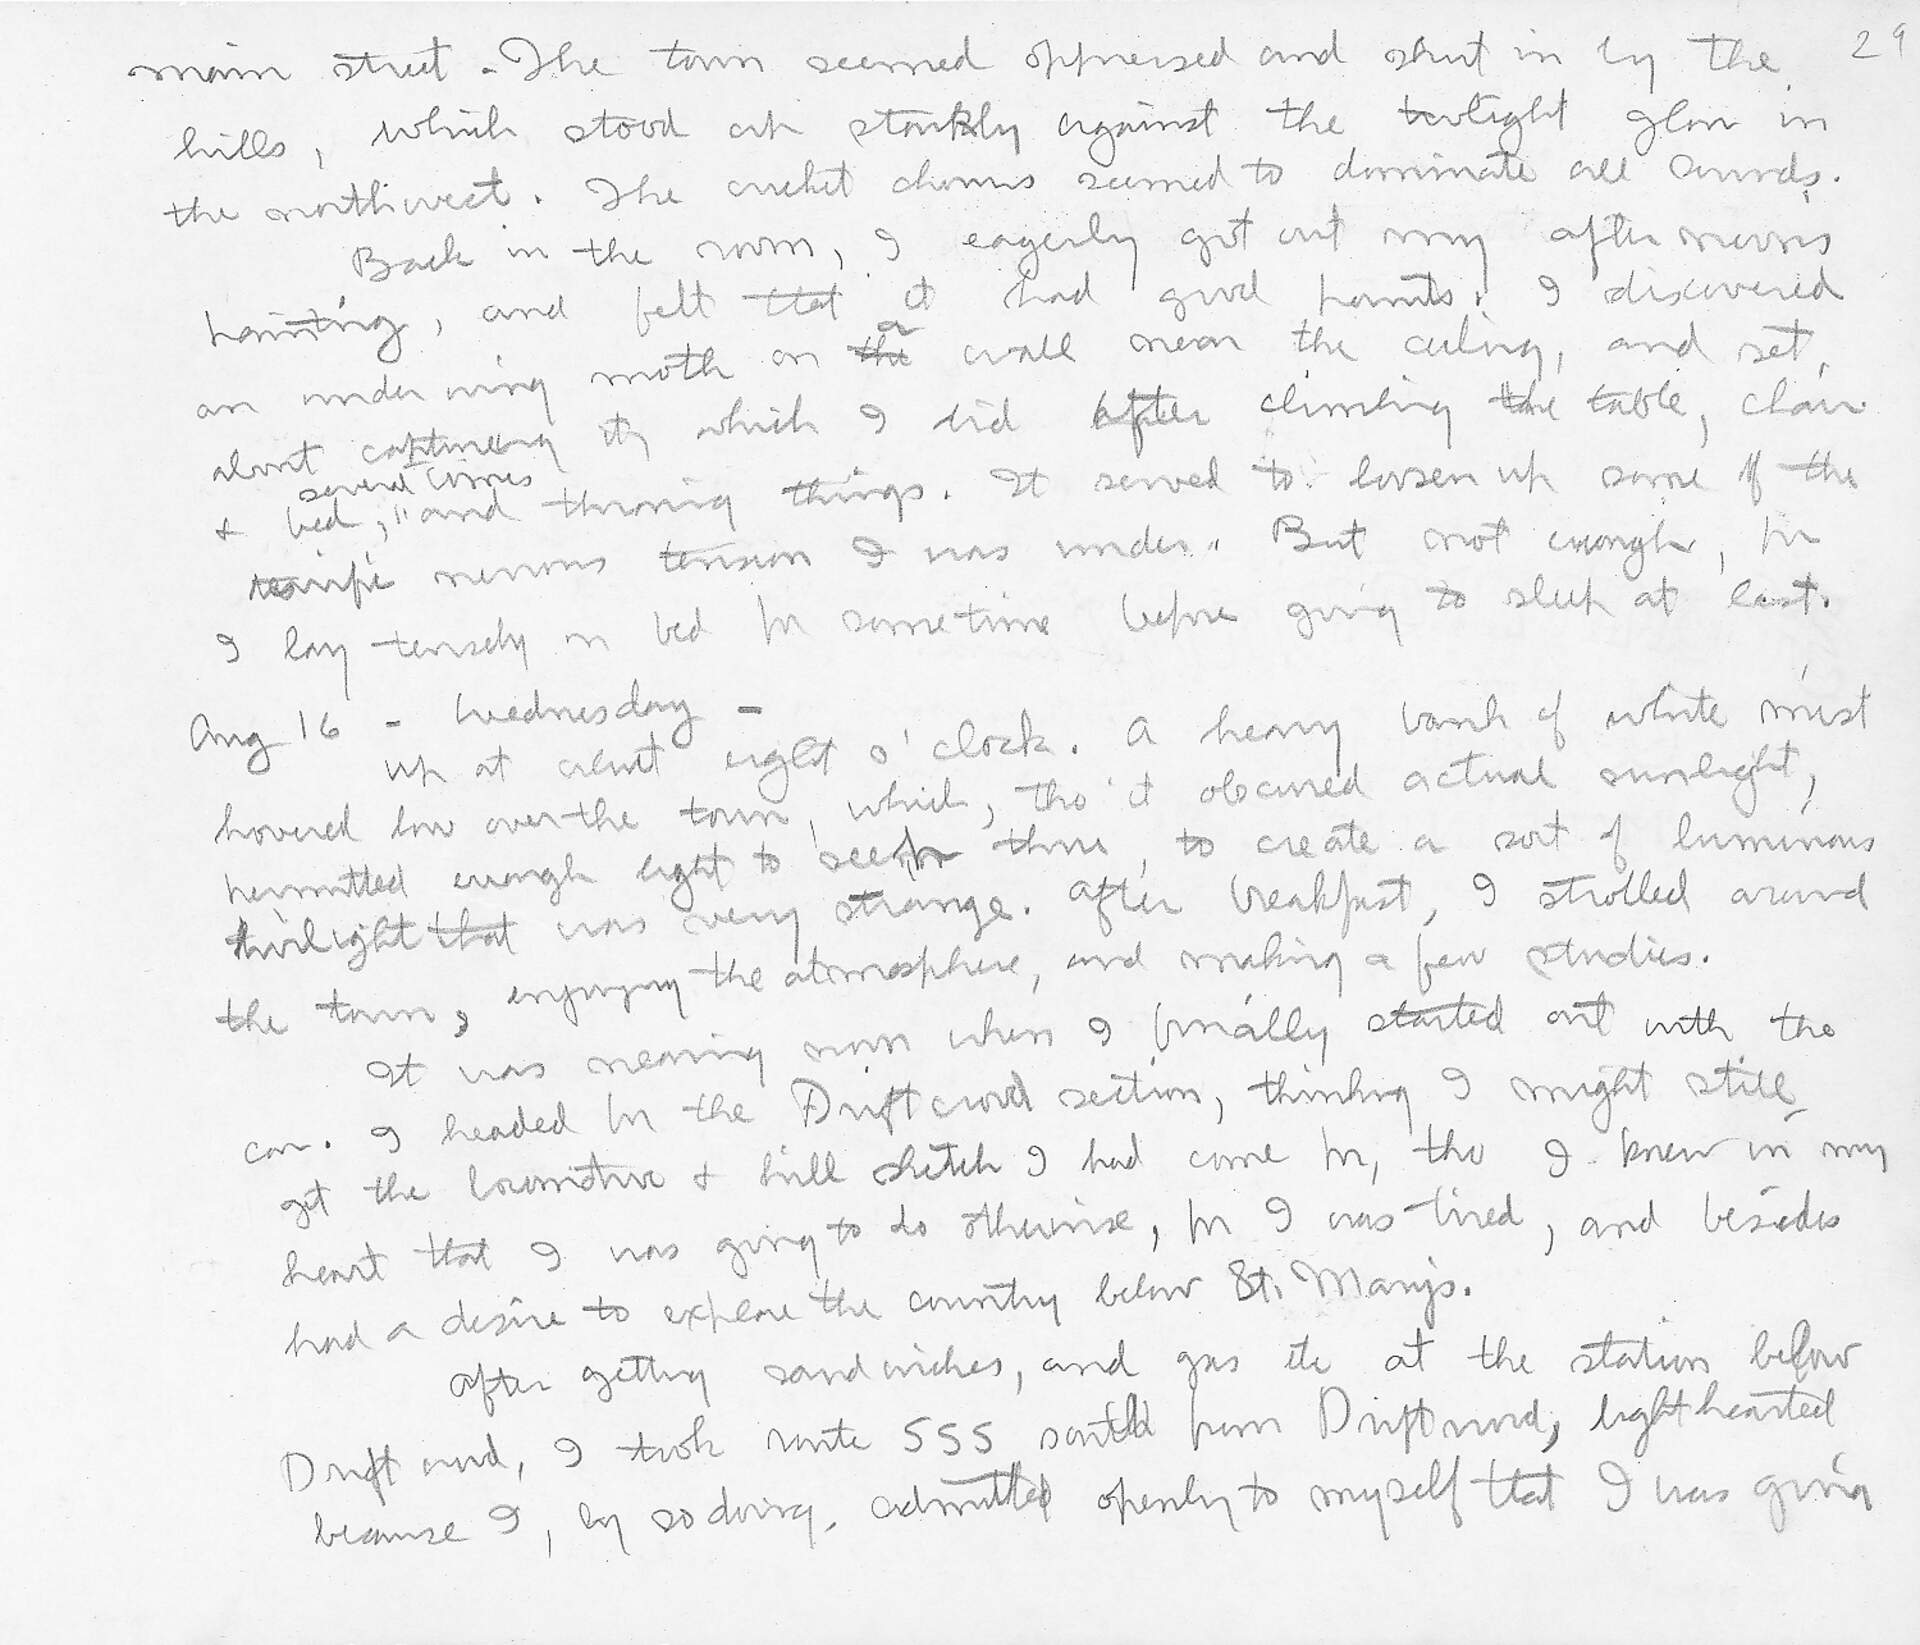 29
main street. The town seemed oppressed and shut in by the
hills, which stood up starkly against the twilight glow in
the northwest. The cricket chorus seemed to dominate all sounds.
Back in the room, I eagerly got out my afternoons
painting, and felt that it had good points. I discovered
a
an underwing moth on the wall near the ceiling, and set
about capturing it, which I did after climbing the table, chair
several times
& bed, and throwing things. It served to loosen up some of the
nervous tension I was under. But not enough, for
I lay tensely in bed for sometime before going to sleep at last.
Aug 16 - Wednesday -
up at about eight o'clock. A heavy bank of white mist
hovered low over the town, which, tho it obscured actual sunlight,
permitted enough light to seep thru, to create a sort of luminous
twilight that was very strange. After breakfast, I strolled around
the town, enjoying the atmosphere, and making a few studies.
It was nearing noon when I finally started out with the
car. I headed for the Driftwood section, thinking I might still
get the locomotive & hill sketch I had come for, tho I knew in my
heart that I was going to do otherwise, for I was tired, and besides
had a desire to explore the country below St. Marys.
After getting sandwiches, and gas etc at the station below
Driftwood, I took route 555 south from Driftwood, lighthearted
because I, by so doing, admitted openly to myself that I was going